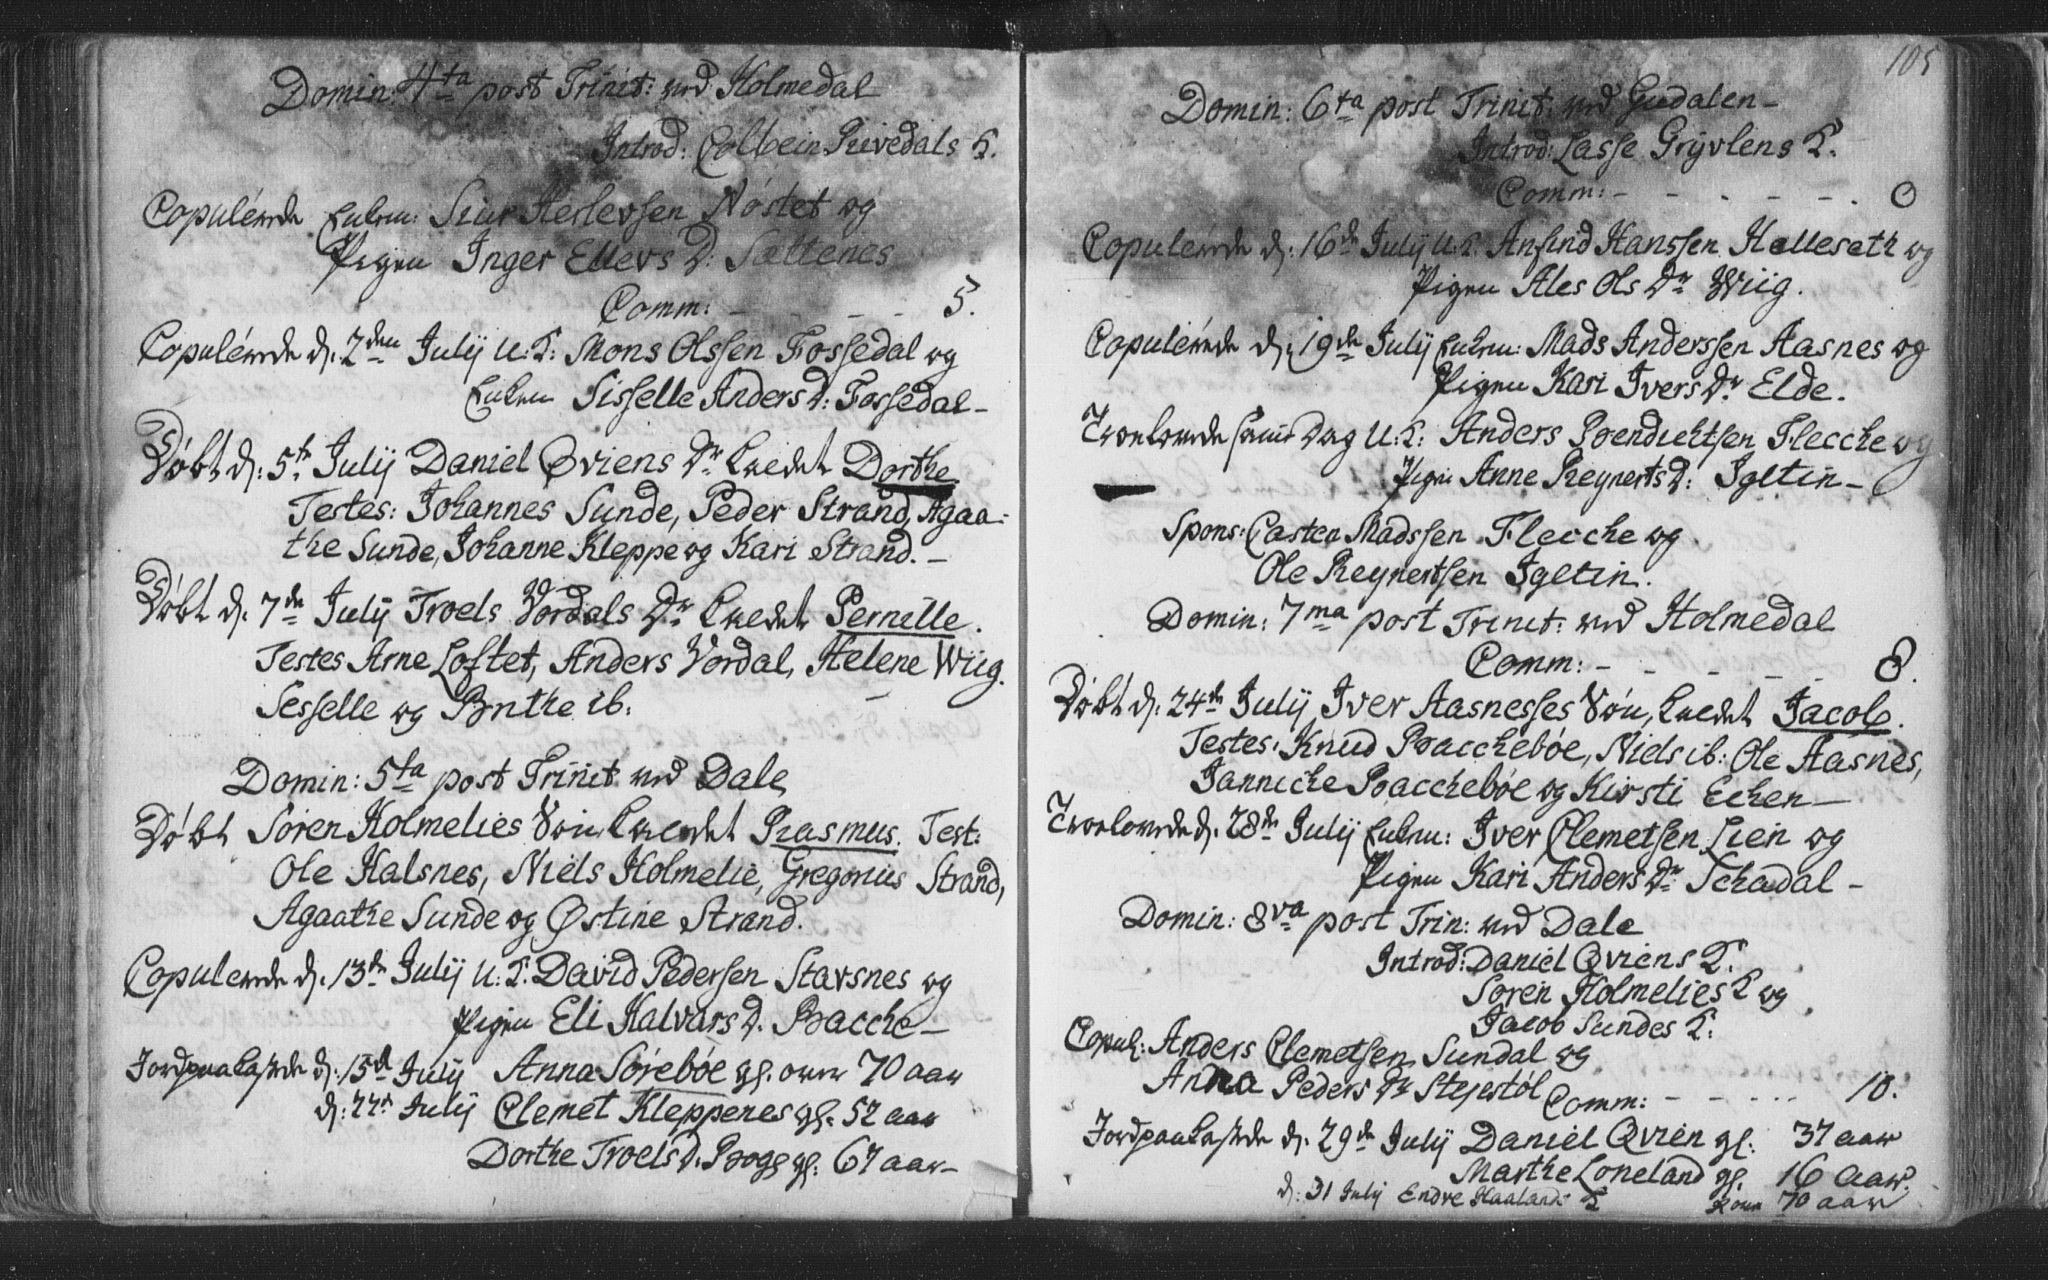 Domin: 4ta post Trinit: ved Holmedal
Introd: Colbein Rivedals K.
Copulerede Enkem: Siur Herlevsen Nøstet og
Pigen Inger Ellevs D: Sættenes
Comm: - - - - 5.
Copulerede d. 2den Julij U. K: Mons Olssen Fossedal og
Enken Sisselle Anders D: Fossedal -
Døbt d: 5te Julij Daniel Qviens Dr kaldet Dorthe
Testes: Johannes Sunde, Peder Strand, Agaa-
the Sunde, Johanne Kleppe og Kari Strand. -
Døbt d. 7de Julij Troels Vordals Dr kaldet Pernille.
Testes Arne Loftet, Anders Vordal, Helene Wiig.
Sesselle og Brithe ib:
Domin: 5ta post Trinit ved Dale
Døbt Søren Holmelies Søn kaldet Rasmus. Test:
Ole Halsnes, Niels Holmelie, Gregorius Strand,
Agaathe Sunde og Østine Strand.
Copulerede d. 13de Julij U. K. David Pedersen Stavsnes og
Pigen Eli Halvars D. Bacche -
Jordpaakastede d: 15de Julij Anna Sørebøe gl. over 70 aar
d: 22de Julij Clemet Kleppenes gl. 52 aar
Dorthe Troels D. Boge gl. 67 aar -
105
Domin: 6ta post Trinit: ved Gudalen -
Introd: Lasse Grÿvlens K.
Comm: - - - - - 0
Copulerede d: 16de Julij U. K. Anfind Hanssen Helleseth og
Pigen Ales Ols Dr Wiig.
Copulerede d. 19de Julij Enkem: Mads Anderssen Aasnes og
Pigen Kari Ivers Dr Elde.
Troelovede samme Dag U: K: Anders Bendichtsen Flecche og
Pigen Anne Reynerts D: Igeltin -
Spons: Casten Madssen Flecche og
Ole Reynertsen Igeltin.
Domin: 7ma post Trinit: ved Holmedal
Comm: - - - - - 8.
Døbt d. 24de Julij Iver Aasnesses Søn, kaldet Jacob.
Testes: Knud Bacchebøe, Niels ib: Ole Aasnes,
Jannicke Bacchebøe og Kirsti Echen -
Troelovede d. 28de Julij Enkem: Iver Clemetsen Lien og
Pigen Kari Anders Dr Schadal -
Domin: 8va post Trin: ved Dale
Introd: Daniel Qviens K.
Søren Holmelies K og
Jacob Sundes K:
Copul: Anders Clemetsen Sundal og
Anna Peders Dr Stejestøl
Comm: - - - ... 10.
Jordpaakastede d. 29de Julij Daniel Qvien gl. 37 aar
Marthe Loneland gl. 16 Aar.
d: 31 Julij Endre Haalands K 70 aar